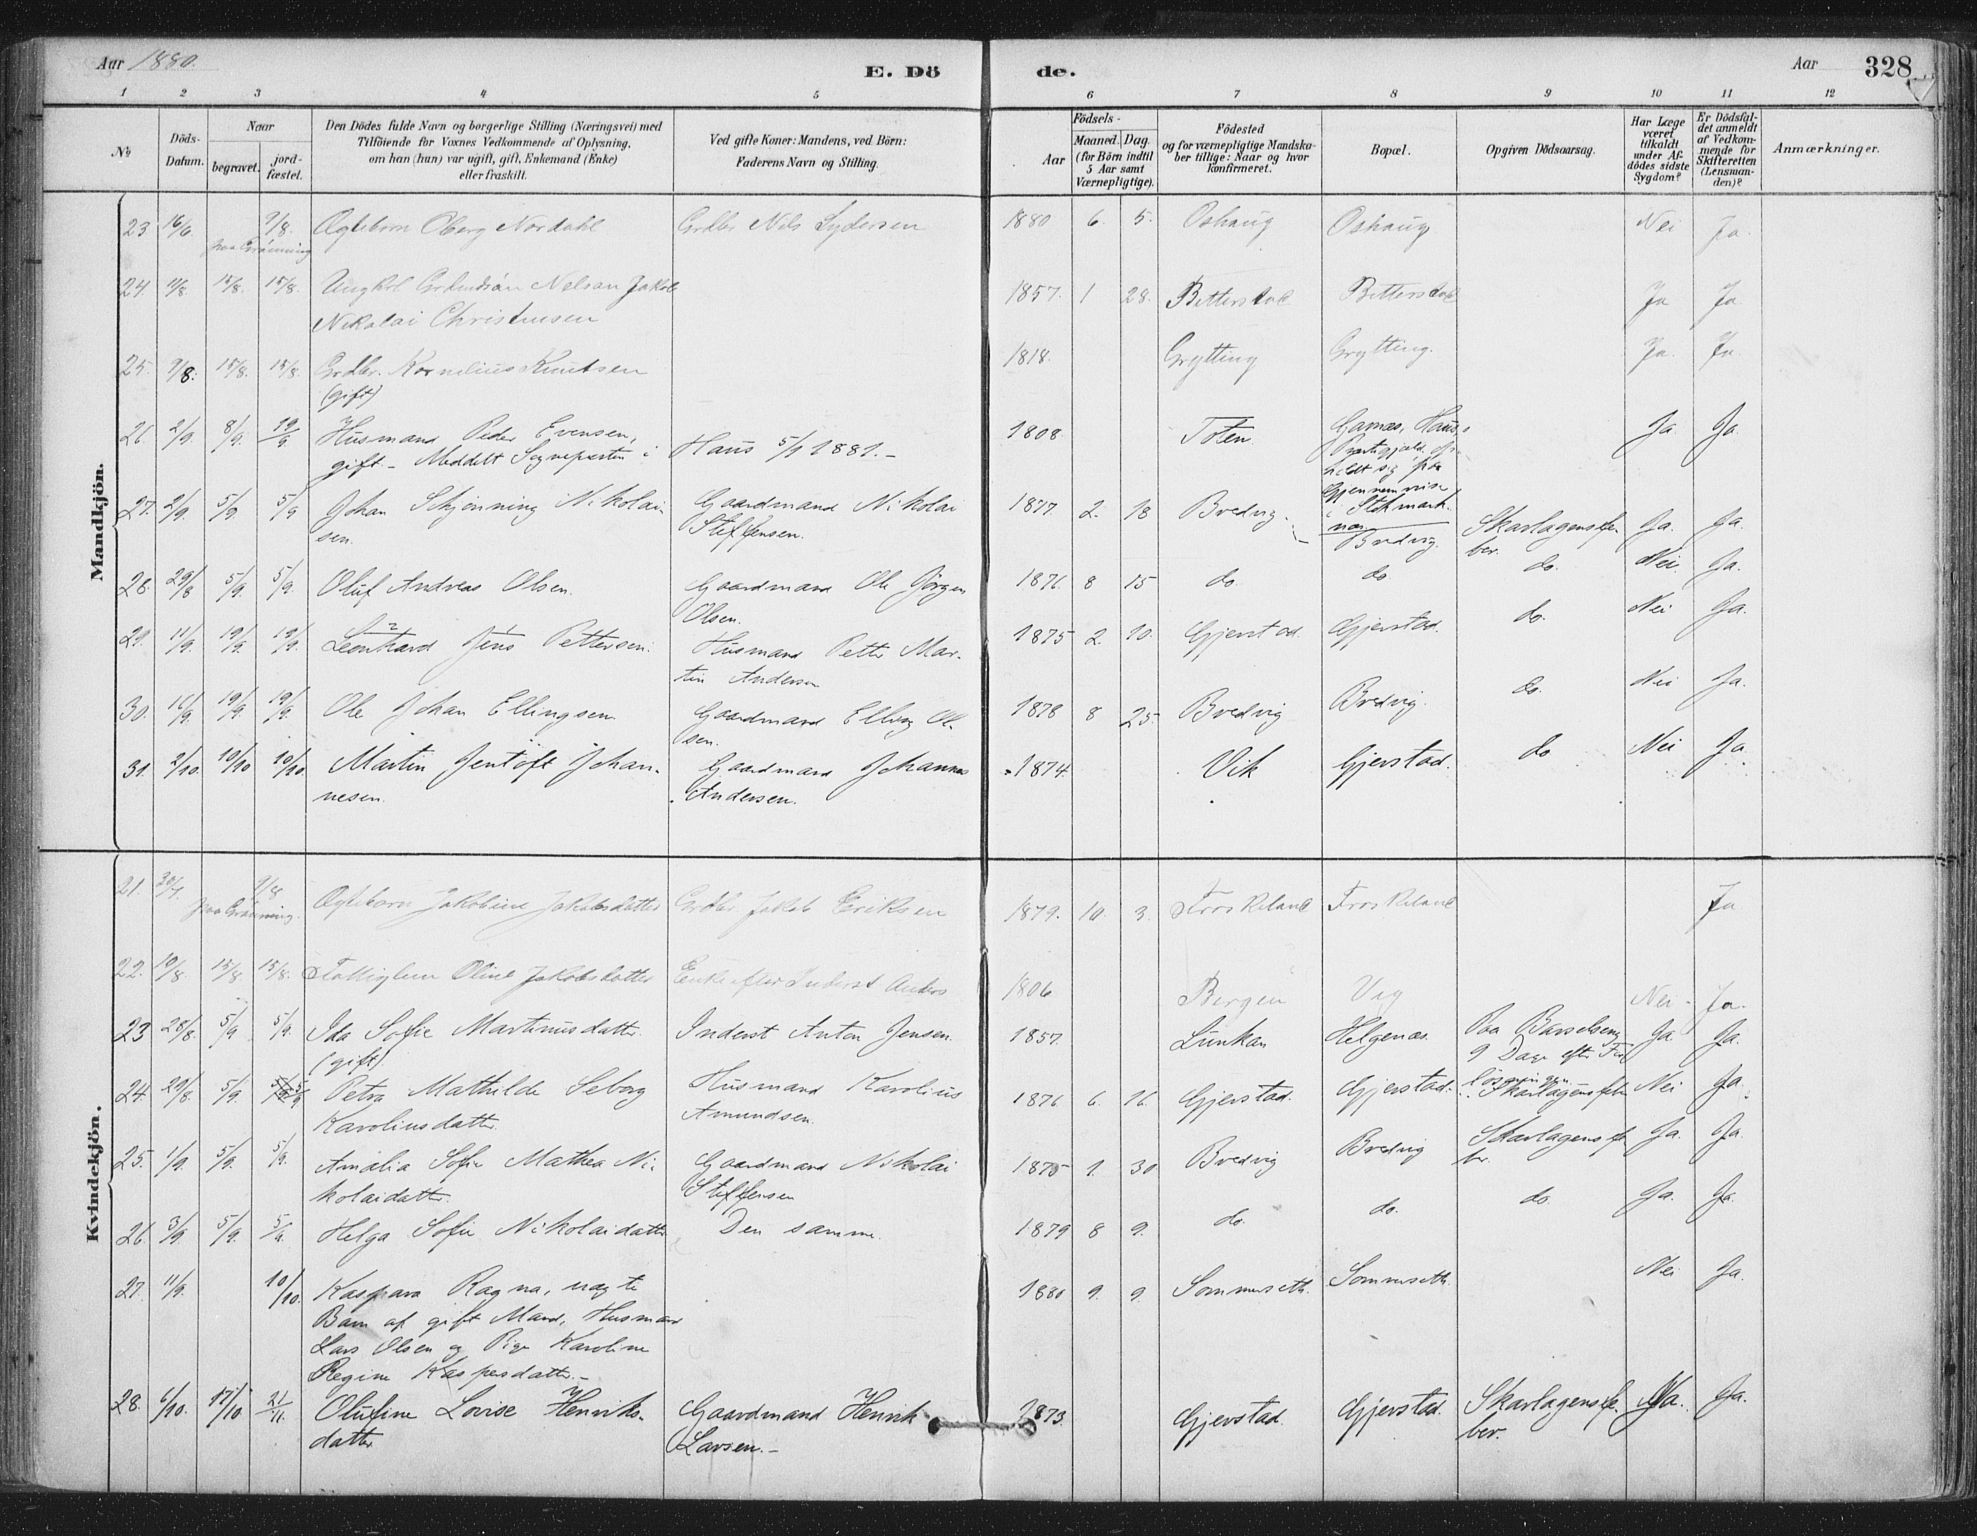 Aar 1880.
E. Dö
de.
Aar
328
1 2 3 4 5 6 7 8 9 10 11 12
№
Döds-Datum.
Naar
begravet.
jord-fæstet.
Den Dödes fulde Navn og borgerlige Stilling (Næringsvei) med
Tilföiende for Voxnes Vedkommende af Oplysning,
om han (hun) var ugift, gift, Enkemand (Enke)
eller fraskilt.
Ved gifte Koner: Mandens, ved Börn:
Faderens Navn og Stilling.
Födsels-
Aar
Maaned. Dag.
(for Börn indtil
5 Aar samt
Værnepligtige).
Födested
og for værnepligtige Mandska-
ber tillige: Naar og hvor
konfirmeret.
Bopæl.
Opgiven Dödsaarsag.
Har Læge
været
tilkaldt
under Af-
dödes sidste
Sygdom?
Er Dödsfal-
det anmeldt
af Vedkom-
mende for
Skifteretten
(Lensman-
den)?
Anmærkninger.
Mandkjön.
23 16/6. 9/8. Ægtebarn Oberg Nordahl Grdbr Nils Sydersen 1880 6. 5. Oshaug Oshaug Nei Ja.
paa Grönning
24. 15/8. 15/8. Ungkrl Nelsan Jakob 1857. 1 28. Ja Ja
Nikolai Christensen
25. 9/8. 15/8. 15/8. Grdbr. Kornelius Knutsen 1818. Grytting Grytting. Ja. Ja
(gift)
26. 2/9. 8/9. 19/9 Husmand Peder Evensen, 1808 Toten. Garnæs, Haus Ja. Ja.
gift. - Meddelt Sognepræsten i Haus 5/1 1881. -
27. 2/9. 5/9. 5/9 Johan Schjönning Nikolai- Gaardmand Nikolai 1877. 2. 18 Bredvig. Bredvig. Skarlagensfe- Ja. Ja.
sen. Steffensen. ber.
28. 29/8 5/9. 5/9. Oluf Andreas Olsen. Gaardmand Ole Jörgen 1876 8 15 do. do do. Nei. Ja.
Olsen.
29. 11/9. 19/9. 19/9. Leonhard Jens Pettersen. Husmand Petter Mar- 1875 2. 10. Gjerstad. Gjerstad. do. Nei Ja.
tin Andersen
30. 16/9. 19/9. 19/9. Ole Johan Ellingsen Gaardmand Elling Ol- 1878 8 25. Bredvig Bredvig. do. Nei Ja.
sen.
31. 2/10. 10/10 10/10. Martin Jentoft Johan- Gaardmand Johannes 1874 Vik Gjerstad. do Nei Ja.
nesen. Andersen.
Kvindekjön.
21. 30/7. 9/8 Ægtebarn Jakobine Jakobsdatter Grdbr Jakob Eriksen 1879. 10. 3. Froskeland Froskeland Ja
paa Grönning.
22. 10/8. 15/8 15/8. Fattiglem Oline Jakobsdatter Enke efter Inderst Anders 1806 Bergen Nei - Ja.
23 28/8. 5/9 5/9. Ida Sofie Martinusdatter. Inderst Anton Jensen. 1857. Lunkan Helgenæs. Paa Barselseng Ja Ja.
(gift) 9 Dage efter
24. 29/8. 5/9. 5/9 Petra Mathilde Seborg Husmand Karolius 1876 6. 16. Gjerstad. Gjerstad. Skarlagensfeber Nei Ja.
Karoliusdatter. Amundsen.
25. 1/9. 5/9. 5/9. Amalia Sofie Mathea Ni- Gaardmand Nikolai 1875 1. 30 Bredvig Bredvig Skarlagensfe- Ja. Ja.
kolaidatter. Steffensen ber.
26. 3/9. 5/9. 5/9. Helga Sofie Nikolaidatter Den samme. 1879 8 9. do. do. do. Ja. Ja.
27. 11/9. 10/10. Kaspara Ragna, uægte 1880 9. 9. Sommerseth. Sommerseth. Nei Ja.
Barn af gift Mand, Husmand
Lars Olsen og Pige Karoline
Regine Kaspersdatter. -
28. 6/10. 17/10 21/11. Olufine Lovise Henriks- Gaardmand Henrik 1873. Gjerstad. Gjerstad. Skarlagensfe- Ja. Ja.
datter Larsen. - ber.